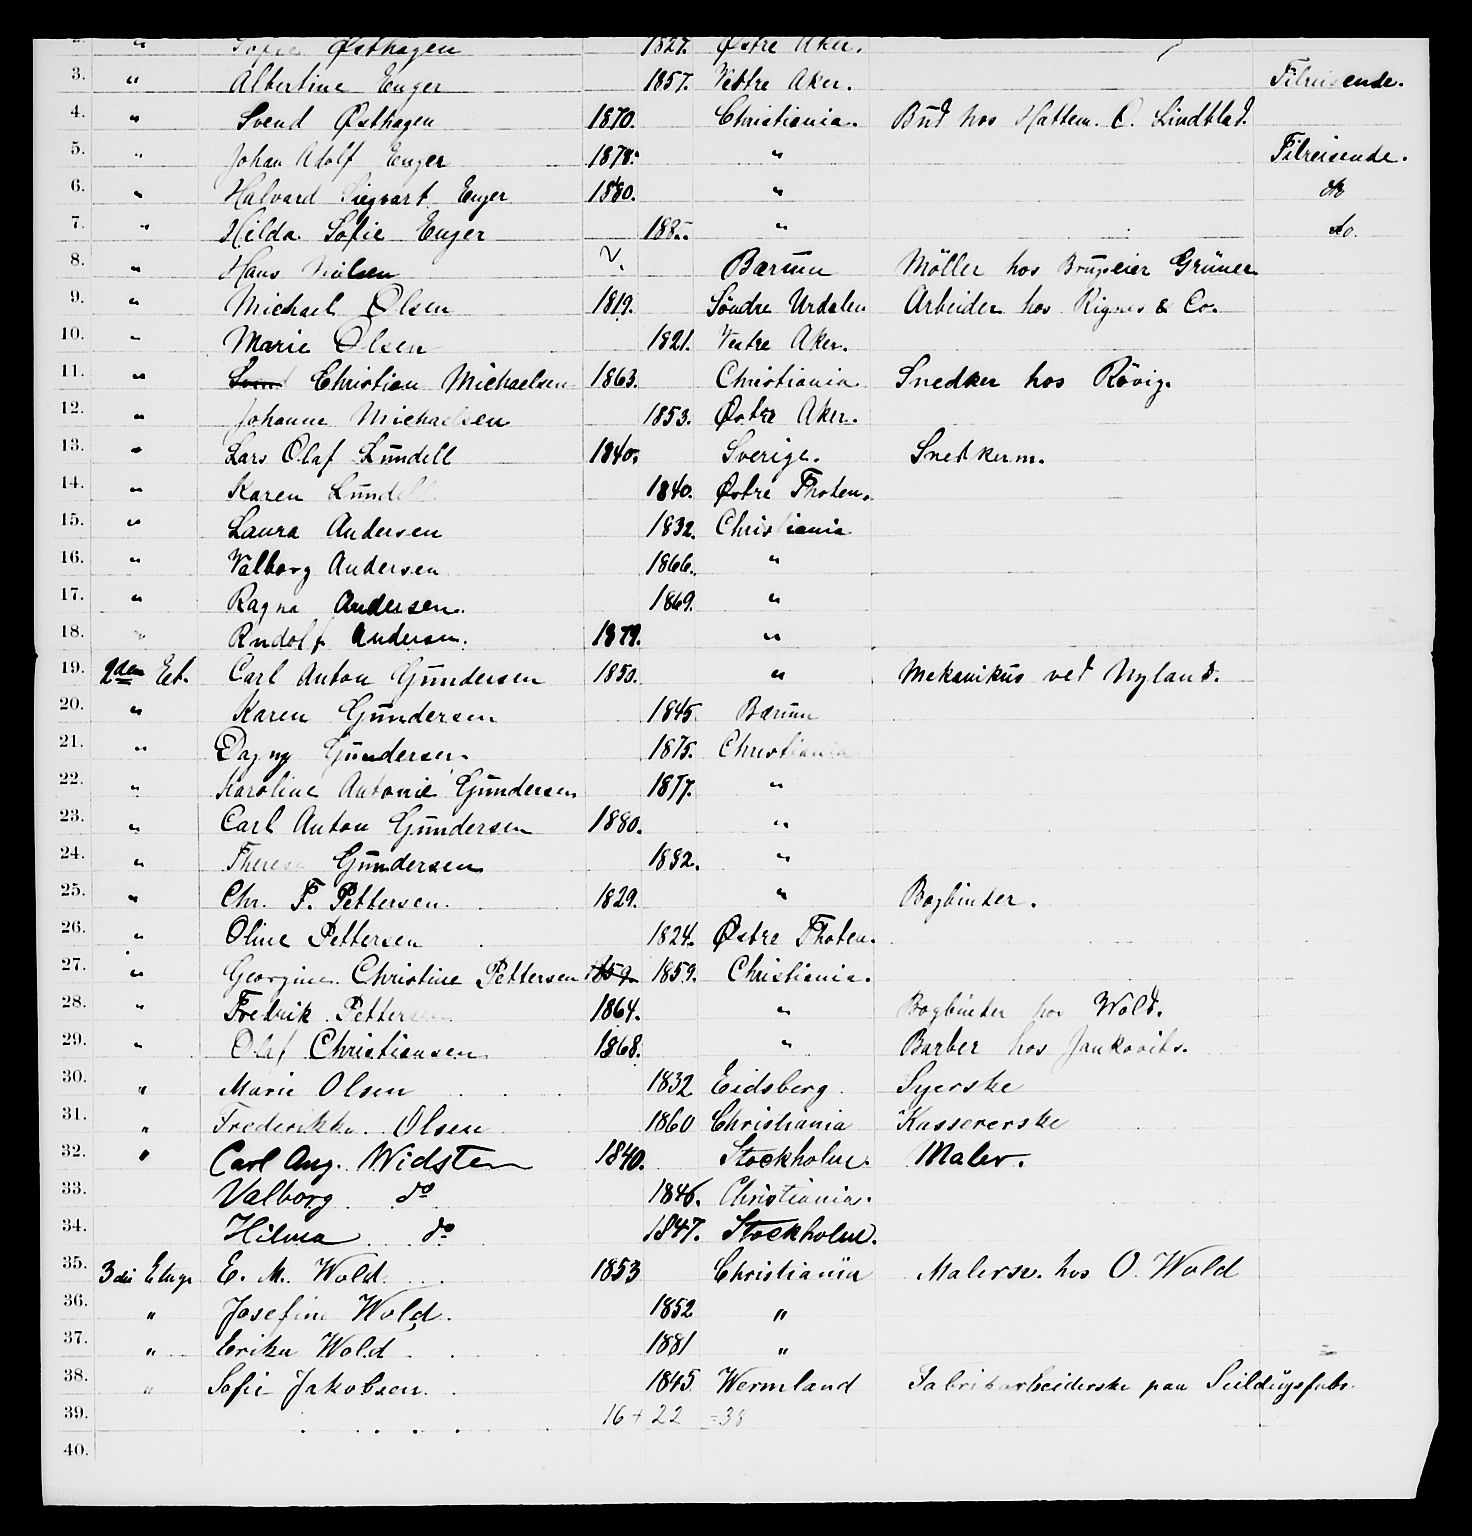 2. " Sofie Østhagen 1827. Østre Aker.
3. " Albertine Enger 1857. Vestre Aker. Tilreisende.
4. " Svend Østhagen 1870. Christiania. Bud hos Hattem. C. Lindblad.
5. " Johan Adolf Enger 1878. " Tilreisende.
6. " Halvard Siegvart Enger 1880. " do
7. " Hilda Sofie Enger 188 " do.
8. " Hans Nielsen Bærum Möller hos Brugseier Grüner
9. " Michael Olsen 1819. Söndre Urdalen Arbeider hos Rignes & Co.
10. " Marie Olsen 1821. Vestre Aker.
11. " Svend Christian Michaelsen 1863. Christiania Snedker hos Rövig.
12. " Johanne Michaelsen 1853. Østre Aker.
13. " Lars Olaf Lundell 1840. Sverige. Snedkerm.
14. " Karen Lundell 1840. Østre Thoten.
15. " Laura Andersen 1832. Christiania
16. " Valborg Andersen 1866. "
17. " Ragna Andersen. 1869. "
18. " Rudolf Andersen. 1879. "
19. 2den Et. Carl Anton Gundersen 1850. " Mekanikus ved Nyland.
20. " Karen Gundersen 1845. Bærum
21. " Dagny Gundersen. 1875. Christiania
22. " Karoline Antonie Gundersen 1877. "
23. " Carl Anton Gundersen 1880. "
24. " Therese Gundersen 1882. "
25. " Chr. F. Pettersen. 1829. " Bogbinder.
26. " Oline Pettersen 1824. Østre Thoten.
27. " Georgine Christine Pettersen 1859. 1859. Christiania.
28. " Fredrik Pettersen 1864. " Bogbinder hos Wold.
29. " Olaf Christiansen 1868. " Barber hos Jankovits.
30. " Marie Olsen 1832 Eidsberg Syerske
31. " Frederikke Olsen 1860 Christiania Kassererske
32. " Carl Aug. Widsten 1840. Stockholm. Maler.
33. Valborg do 1846. Christiania.
34. Hilma do 1847. Stockholm.
35. 3die Etage E. M. Wold 1853 Christiania Malersv. hos O. Wold
36. " Josefine Wold. 1852 "
37. " Erika Wold 1881 "
38. " Sofie Jakobsen. 1845 Wermland Fabrikarbeiderske paa Seildugsfabr.
39. 16 + 22 = 38
40.